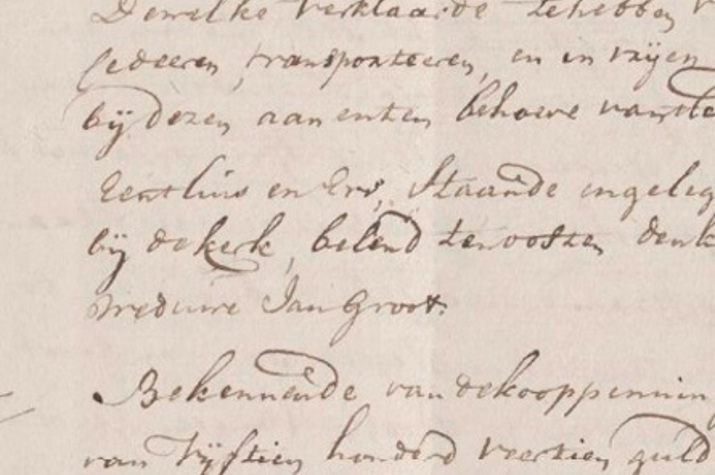 Dewelke verklaarde te hebben
Cedeeren, transporteeren, en in vrijen
bij dezen aan en ten behoeve van
Een Huis en Erv, Staande en geleg
bij de kerk, belend ten oosten den
weduwe Jan Groot.
Bekennende van de kooppennin
van Vijftien honderd veertien guld